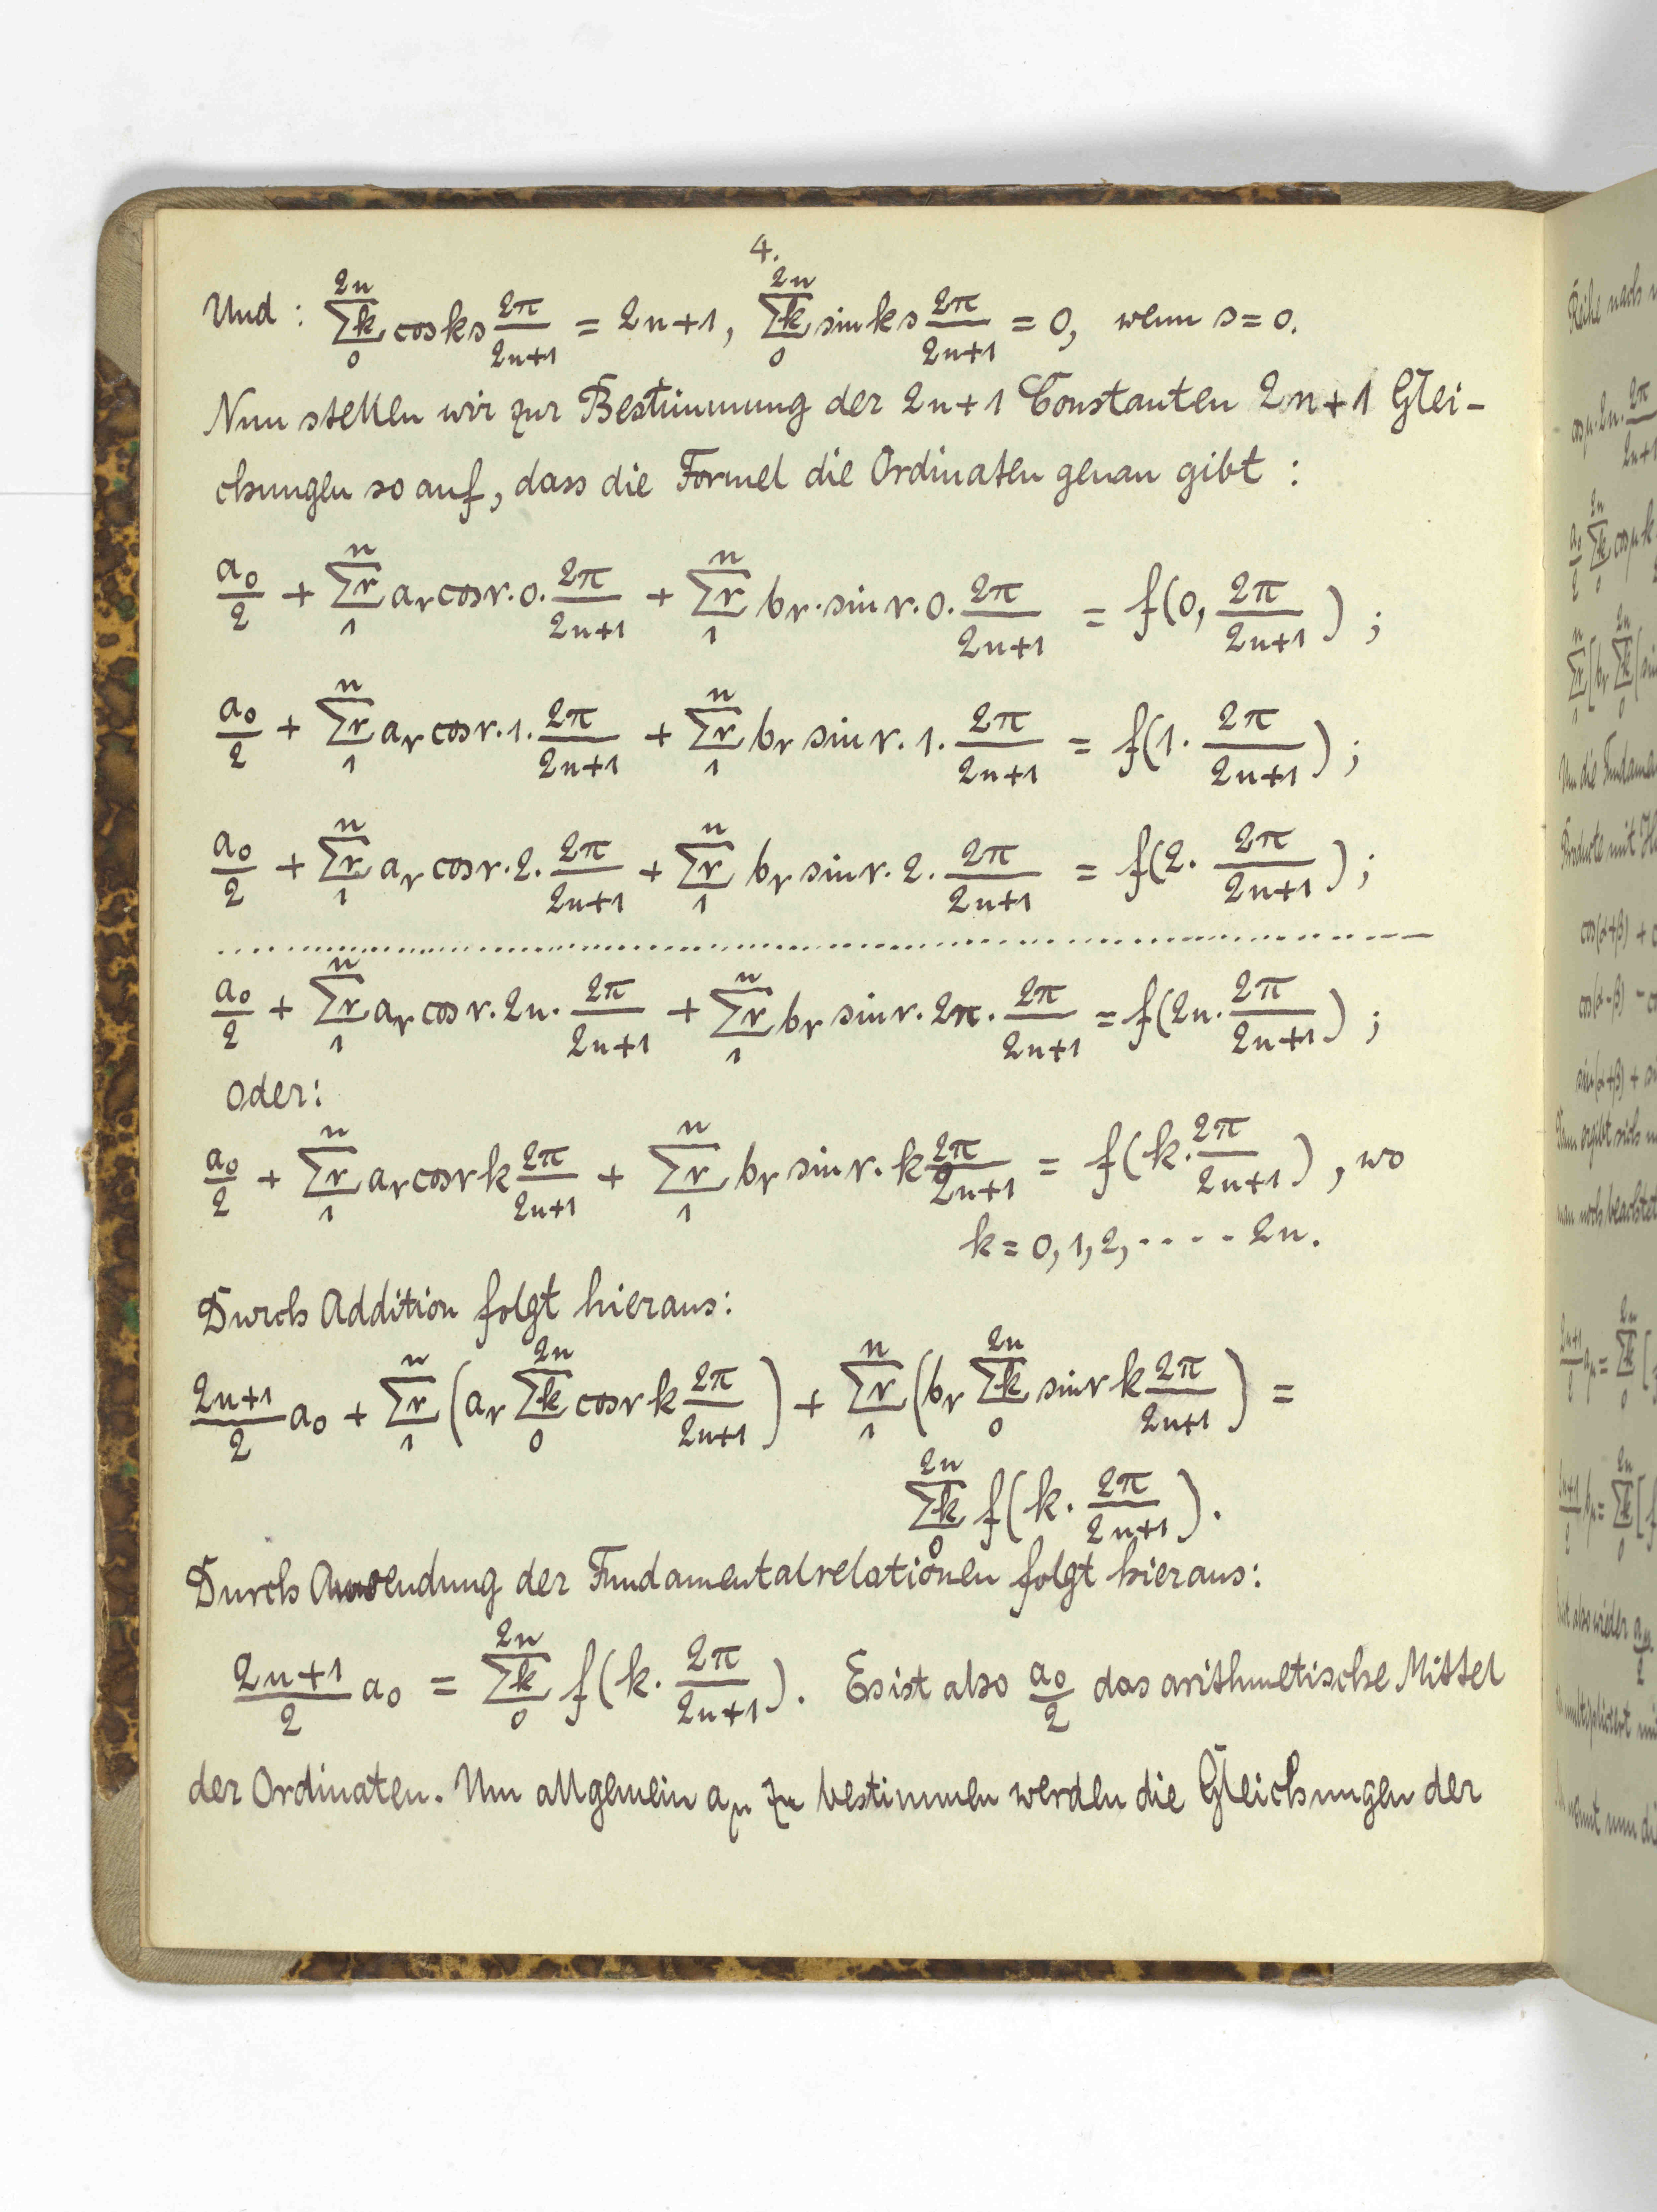 4.
Und : $\sum_{0}^{2n}{}_{k} \cos ks \frac{2\pi}{2n+1} = 2n+1, \sum_{0}^{2n}{}_{k} \sin ks \frac{2\pi}{2n+1} = 0,$ wenn $s = 0.$
Nun stellen wir zur Bestimmung der 2n+1 Constanten 2n+1 Glei-
chungen so auf, dass die Formel die Ordinaten genau gibt :
$\frac{a_0}{2} + \sum_{1}^{n}{}_{r} a_r \cos r \cdot 0 \cdot \frac{2\pi}{2n+1} + \sum_{1}^{n}{}_{r} b_r \cdot \sin r \cdot 0 \cdot \frac{2\pi}{2n+1} = f(0, \frac{2\pi}{2n+1}) ;$
$\frac{a_0}{2} + \sum_{1}^{n}{}_{r} a_r \cos r \cdot 1 \cdot \frac{2\pi}{2n+1} + \sum_{1}^{n}{}_{r} b_r \sin r \cdot 1 \cdot \frac{2\pi}{2n+1} = f(1 \cdot \frac{2\pi}{2n+1}) ;$
$\frac{a_0}{2} + \sum_{1}^{n}{}_{r} a_r \cos r \cdot 2 \cdot \frac{2\pi}{2n+1} + \sum_{1}^{n}{}_{r} b_r \sin r \cdot 2 \cdot \frac{2\pi}{2n+1} = f(2 \cdot \frac{2\pi}{2n+1}) ;$
$\frac{a_0}{2} + \sum_{1}^{n}{}_{r} a_r \cos r \cdot 2n \cdot \frac{2\pi}{2n+1} + \sum_{1}^{n}{}_{r} b_r \sin r \cdot 2n \cdot \frac{2\pi}{2n+1} = f(2n \cdot \frac{2\pi}{2n+1}) ;$
oder:
$\frac{a_0}{2} + \sum_{1}^{n}{}_{r} a_r \cos rk \frac{2\pi}{2n+1} + \sum_{1}^{n}{}_{r} b_r \sin r \cdot k \frac{2\pi}{2n+1} = f(k \cdot \frac{2\pi}{2n+1})$ , wo
k = 0, 1, 2, ····· 2n.
Durch Addition folgt hieraus:
$\frac{2n+1}{2} a_0 + \sum_{1}^{n}{}_{r} \left( a_r \sum_{0}^{2n}{}_{k} \cos rk \frac{2\pi}{2n+1} \right) + \sum_{1}^{n}{}_{r} \left( b_r \sum_{0}^{2n}{}_{k} \sin rk \frac{2\pi}{2n+1} \right) =$
$\sum_{0}^{2n}{}_{k} f(k \cdot \frac{2\pi}{2n+1}).$
Durch Anwendung der Fundamentalrelationen folgt hieraus:
$\frac{2n+1}{2} a_0 = \sum_{0}^{2n}{}_{k} f(k \cdot \frac{2\pi}{2n+1}).$ Es ist also $\frac{a_0}{2}$ das arithmetische Mittel
der Ordinaten. Um allgemein $a_\mu$ zu bestimmen werden die Gleichungen der